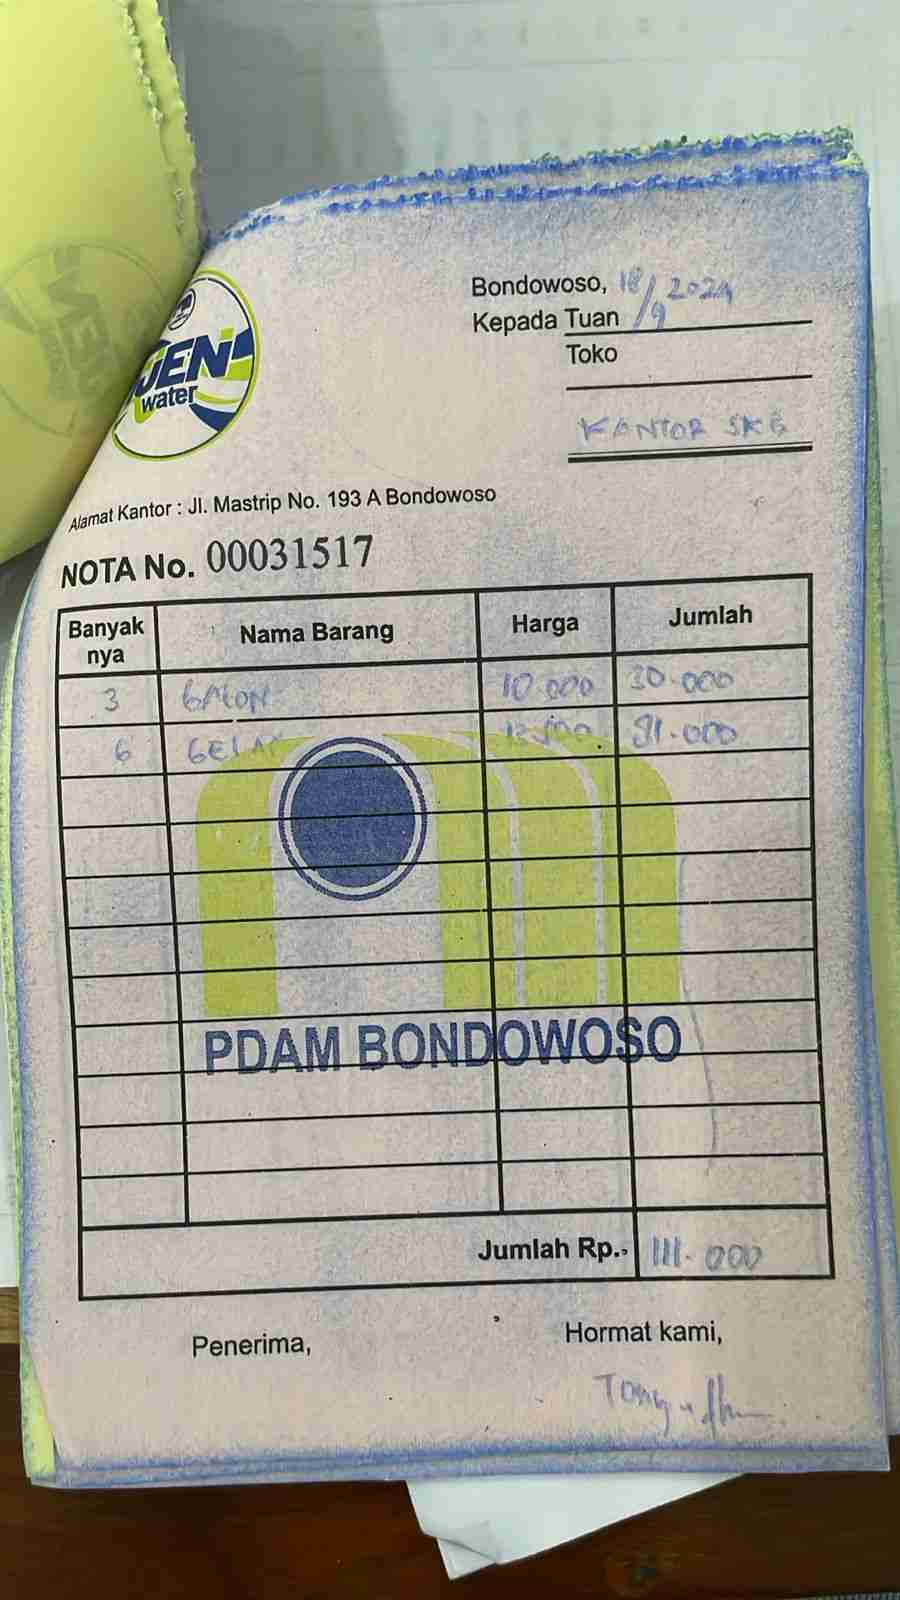 IJEN
water
Bondowoso, 18/9 2024
Kepada Tuan
Toko
KANTOR SKB
Alamat Kantor : Jl. Mastrip No. 193 A Bondowoso
NOTA No. 00031517
Banyak nya Nama Barang Harga Jumlah
3 GALON 10.000 30.000
6 GELAS 81.000
PDAM BONDOWOSO
Jumlah Rp. 111.000
Penerima, Hormat kami,